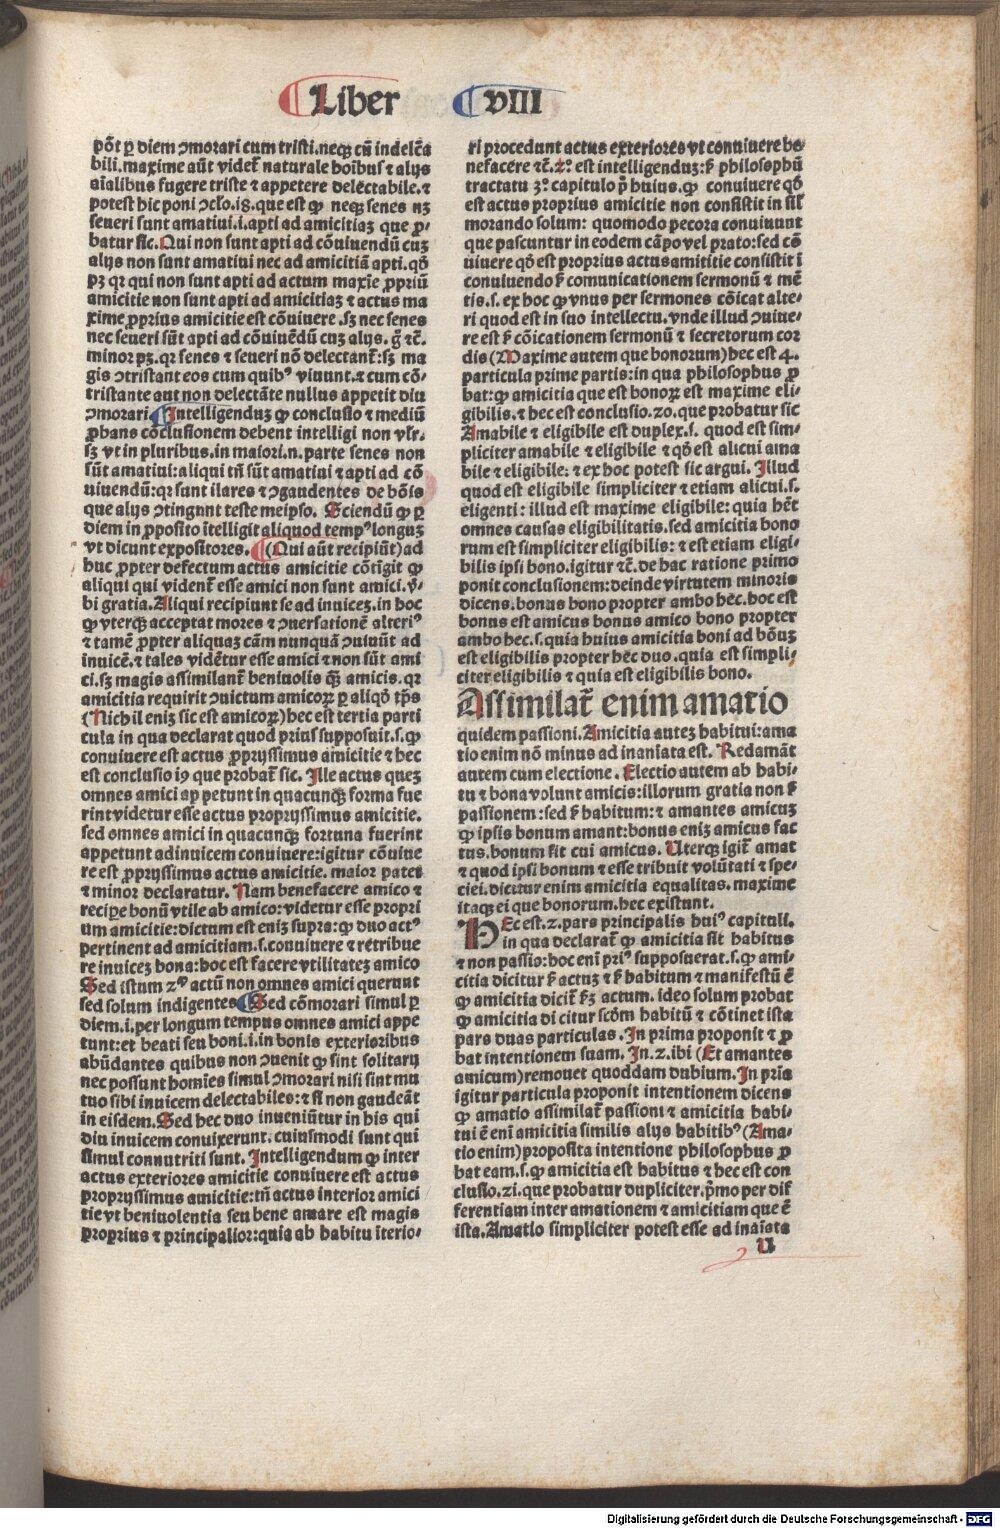 Liber VIII
põt ꝑ diem ↄmorari cum tristi.neqꝫ cũ indelẽa
bili.maxime aũt videt᷑ naturale hoĩbus ⁊ alijs
aĩalibus fugere triste ⁊ appetere delectabile.⁊
potest hic poni ↄclo.18.que est ꝙ neqꝫ senes nꝫ
seueri sunt amatiui.i.apti ad amicitiaꝫ que ꝓ⸗
batur sic.Qui non sunt apti ad cõuiuendũ cuꝫ
alijs non sunt amatiui nec ad amicitiã apti.qđ
pꝫ qꝛ qui non sunt apti ad actum maxĩe ꝓpriũ
amicitie non sunt apti ad amicitiaꝫ ⁊ actus ma
xime ꝓprius amicitie est cõuiuere.sꝫ nec senes
nec seueri sũt apti ad cõuiuẽdũ cuꝫ alijs.g̃ ⁊c̃.
minor pꝫ.qꝛ senes ⁊ seueri nõ delectant᷑:sꝫ ma
gis ↄtristant eos cum quibꝰ viuunt.⁊ cum cõ⸗
tristante aut non delectãte nullus appetit diu
ↄmorari Intelligenduꝫ ꝙ conclusio ⁊ mediũ
ꝓbans cõclusionem debent intelligi non vl̃r.
sꝫ vt in pluribus.in maiori.n.parte senes non
sũt amatiui:aliqui tñ sũt amatiui ⁊ apti ad cõ
uiuendũ:qꝛ sunt ilares ⁊ ↄgaudentes de bõis
que alijs ↄtingunt teste meipso. Sciendũ ꝙ ꝑ
diem in ꝓposito ĩtelligit aliquod tempꝰ longuꝫ
vt dicunt expositores. (Qui aũt recipiũt)ad
huc ꝓpter defectum actus amicitie cõtigit ꝙ
aliqui qui vident᷑ esse amici non sunt amici.v̾⸗
bi gratia.Aliqui recipiunt se ad inuiceꝫ.in hoc
ꝙ vterqꝫ acceptat mores ⁊ ↄuersationẽ alteriꝰ
⁊ tamẽ ꝓpter aliquaꝫ cãm nunquã ↄuiuũt ad
inuicẽ.⁊ tales vidẽtur esse amici ⁊ non sũt ami
ci.sꝫ magis assimilant᷑ beniuolis qꝫ̃ amicis.qꝛ
amicitia requirit ↄuictum amicoꝝ ꝑ aliqđ tp̃s
(Nichil eniꝫ sic est amicoꝝ)hec est tertia parti
cula in qua declarat quod prius supposuit.s.ꝙ
conuiuere est actus ꝓprijssimus amicitie ⁊ hec
est conclusio 19 que probat᷑ sic. Ille actus queꝫ
omnes amici appetunt in quacunqꝫ forma fue
rint videtur esse actus proprijssimus amicitie.
sed omnes amici in quacunqꝫ fortuna fuerint
appetunt adinuicem conuiuere:igitur cõuiue
re est ꝓprijssimus actus amicitie. maior patet
⁊ minor declaratur. Nam benefacere amico ⁊
recipe bonũ vtile ab amico:videtur esse propri
um amicitie:dictum est eniꝫ supra:ꝙ duo actꝰ
pertinent ad amicitiam.s.conuiuere ⁊ retribue
re inuiceꝫ bona:hoc est facere vtilitateꝫ amico
Sed istum 2ꝰ actũ non omnes amici querunt
sed solum indigentes Sed cõmorari simul ꝑ
diem.i.per longum tempus omnes amici appe
tunt:et beati seu boni.i.in bonis exterioribus
abũdantes quibus non ↄuenit ꝙ sint solitarij
nec possunt homĩes simul ↄmorari nisi sint mu
tuo sibi inuicem delectabiles:⁊ si non gaudeãt
in eisdem.Sed hec duo inueniũtur in his qui
diu inuicem conuixerunt.cuiusmodi sunt qui
simul connutriti sunt. Intelligendum ꝙ inter
actus exteriores amicitie conuiuere est actus
proprijssimus amicitie:tñ actus interior amici
tie vt beniuolentia seu bene amare est magis
proprius ⁊ principalior:quia ab habitu ĩterio⸗
ri procedunt actus exteriores vt conuiuere be
nefacere ⁊c̃.2.º est intelligenduꝫ:ẜm philosophũ
tractatu 3.º capitulo p̃ huius.ꝙ conuiuere qđ
est actus proprius amicitie non consistit in sil̃
morando solum: quomodo pecora conuiuunt
que pascuntur in eodem cãpo vel prato:sed cõ
uiuere qđ est proprius actus amititie consistit ĩ
conuiuendo ẜm communicationem sermonũ ⁊ mẽ
tis.s. ex hoc ꝙ vnus per sermones cõicat alte⸗
ri quod est in suo intellectu.vnde illud ↄuiue⸗
re est ẜm cõicationem sermonũ ⁊ secretorum cor
dis(Maxime autem que bonorum)hec est 4.
particula prime partis:in qua philosophus ꝓ
bat:ꝙ amicitia que est bonoꝝ est maxime eli⸗
gibilis.⁊ hec est conclusio.20.que probatur sic
Amabile ⁊ eligibile est duplex.s. quod est sim⸗
pliciter amabile ⁊ eligibile ⁊ qđ est alicui ama
bile ⁊ eligibile: ⁊ ex hoc potest sic argui. Illud
quod est eligibile simpliciter ⁊ etiam alicui.s.
eligenti: illud est maxime eligibile: quia hẽt
omnes causas eligibilitatis.sed amicitia bono
rum est simpliciter eligibilis: ⁊ est etiam eligi⸗
bilis ipsi bono.igitur ⁊c̃.de hac ratione primo
ponit conclusionem:deinde virtutem minoris
dicens.bonus bono propter ambo hec.hoc est
bonus est amicus bonus amico bono propter
ambo hec.s.quia huius amicitia boni ad bõuꝫ
est eligibilis propter hec duo.quia est simpli⸗
citer eligibilis ⁊ quia est eligibilis bono.
Assimilat᷑ enim amatio
quidem passioni.Amicitia auteꝫ habitui:ama
tio enim nõ minus ad inaniata est. Redamãt
autem cum electione. Electio autem ab habi⸗
tu ⁊ bona volunt amicis:illorum gratia non ẜm
passionem:sed ẜm habitum:⁊ amantes amicuꝫ
ꝙ ipsis bonum amant:bonus eniꝫ amicus fac
tus.bonum fit cui amicus. Uterqꝫ igit᷑ amat
⁊ quod ipsi bonum ⁊ esse tribuit volũtati ⁊ spe⸗
ciei.dicitur enim amicitia equalitas.maxime
itaqꝫ ei que bonorum.hec existunt.
HEc est.2.pars principalis huiꝰ capituli.
in qua declarat᷑ ꝙ amicitia sit habitus
⁊ non passio:hoc enĩ priꝰ supposuerat.s.ꝙ ami⸗
citia dicitur ẜm actuꝫ ⁊ ẜm habitum ⁊ manifestũ ẽ
ꝙ amicitia dicit᷑ ẜm actum. ideo solum probat
ꝙ amicitia dicitur scđm habitũ ⁊ cõtinet ista
pars duas particulas. In prima proponit ⁊ ꝓ
bat intentionem suam. In.2.ibi (Et amantes
amicum)remouet quoddam dubium.In pria
igitur particula proponit intentionem dicens
ꝙ amatio assimilat᷑ passioni ⁊ amicitia habi⸗
tui ẽ enĩ amicitia similis alijs habitibꝰ(Ama⸗
tio enim)proposita intentione philosophus ꝓ
bat eam.s.ꝙ amicitia est habitus ⁊ hec est con
clusio.21.que probatur dupliciter.pͥmo per dif
ferentiam inter amationem ⁊ amicitiam que ẽ
ista.Amatio simpliciter potest esse ad inaĩata
U
Digitalisierung gefördert durch die Deutsche Forschungsgemeinschaft - DFG